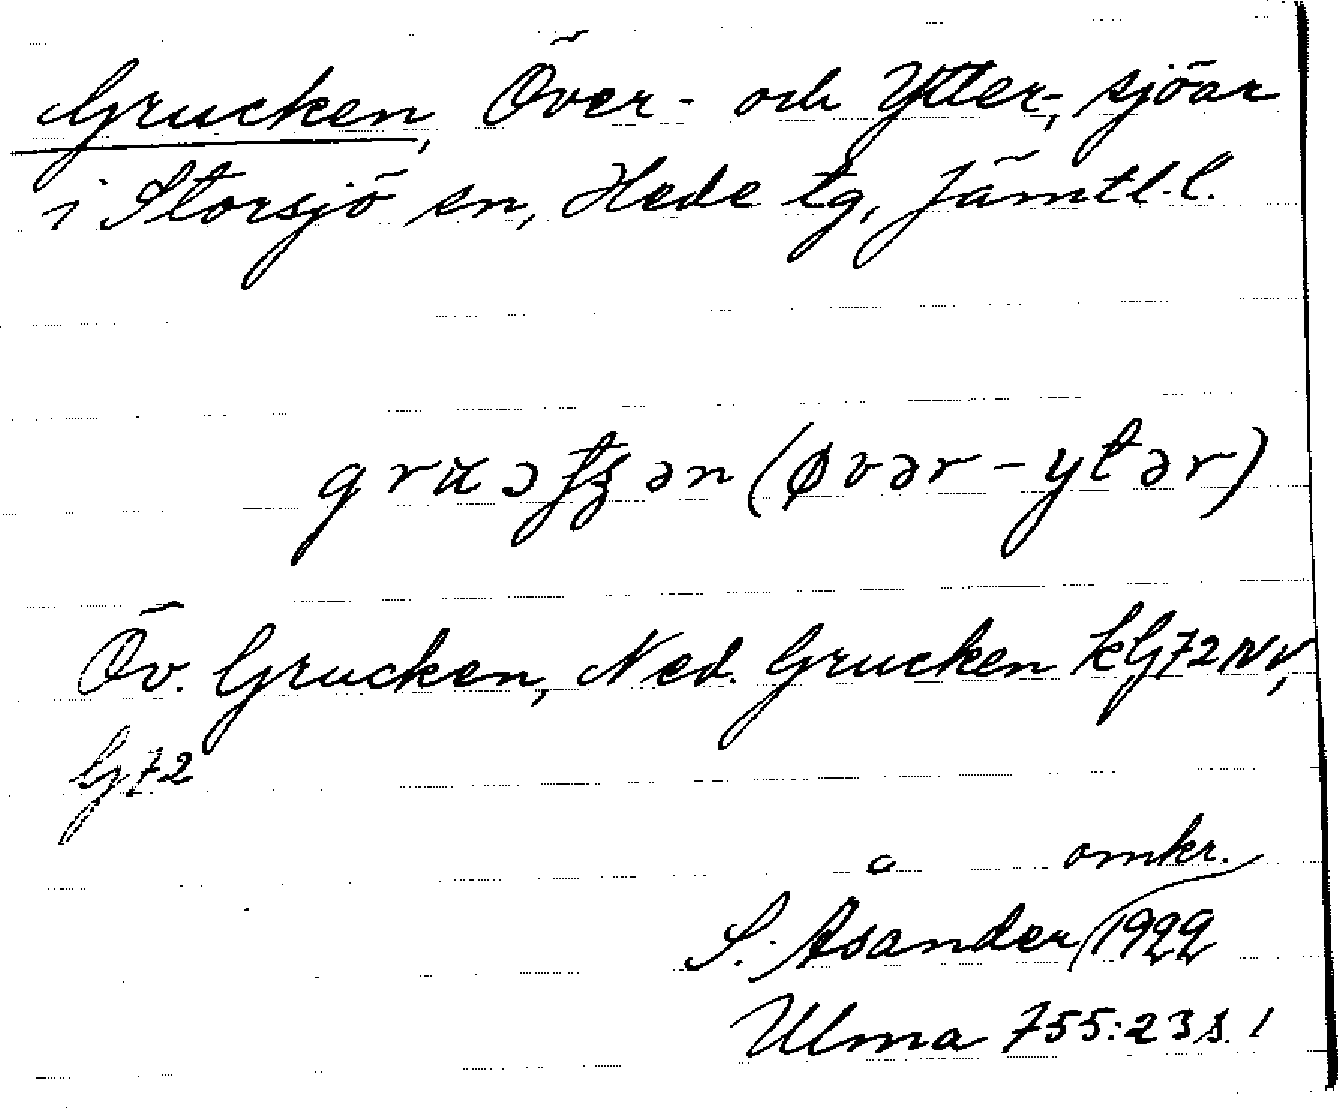 Grucken, Över- och Ytter-, sjöar
i Storsjö sn, Hede tg, Jämtl. l.
(øvər-ytər)
Öv. Grucken, Ned. Grucken kG72NV,
G72
omkr.
S. Åsander 1922
Ulma 755:23 s. 1